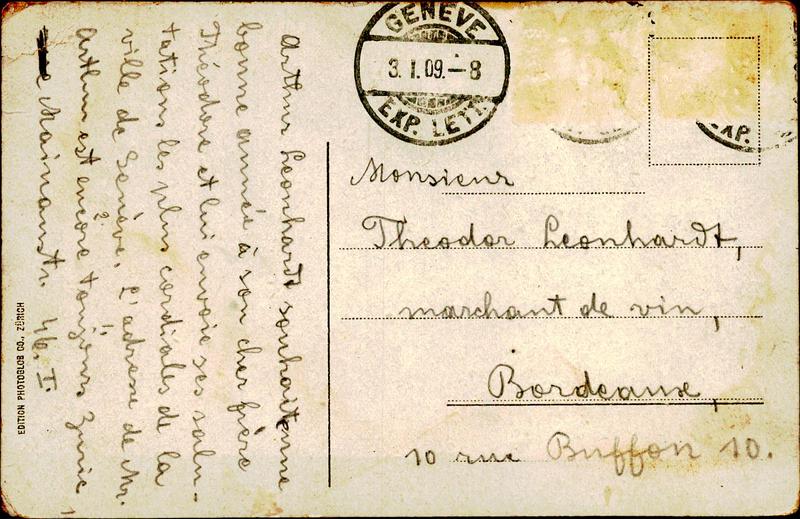 GENÈVE
3. I. 09. – 8
EXP. LETT.
EXP.
Arthur Leonhardt souhaite une
bonne année à son cher frère
Théodore et lui envoie ses salu-
tations les plus cordiales de la
ville de Genève. L'adresse de Mr.
Arthur est encore toujours Zuric,
Mainaustr. 46. I.
EDITION PHOTOGLOB CO., ZÜRICH
Monsieur
Theodor Leonhardt,
marchant de vin,
Bordeaux,
10 rue Buffon 10.